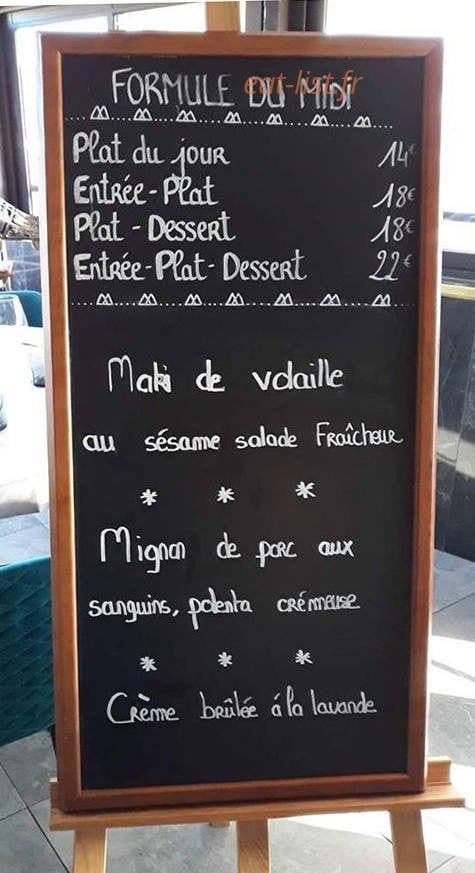 FORMULE DU MIDI
eat-list.fr
Plat du jour 14€
Entrée-Plat 18€
Plat - Dessert 18€
Entrée-Plat-Dessert 22€
Maki de volaille
au sésame salade Fraîcheur
* * *
Mignon de porc aux
sanguins, polenta crémeuse
* * *
Crème brûlée á la lavande